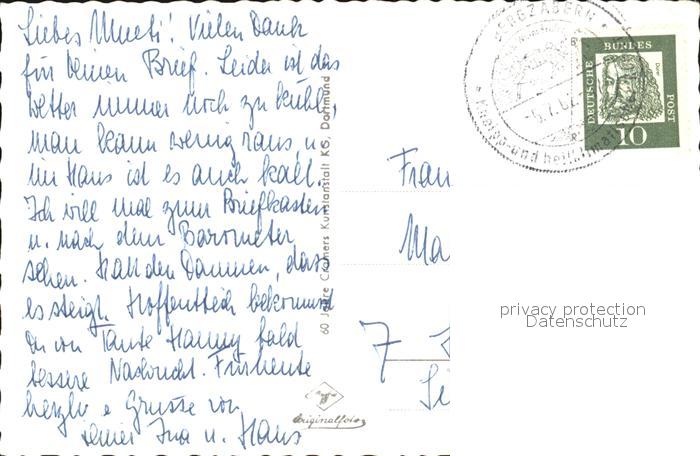 Liebes Mutti! Vielen Dank
für deinen Brief. Leider ist das
Wetter immer noch zu kühl,
man kann wenig raus, u.
im Haus ist es auch kalt.
Ich will mal zum Briefkasten
u. nach dem Barometer
sehen. Halt den Daumen, dass
es steigt. Hoffentlich bekommst
du von Tante Hanny bald
bessere Nachricht. Für heute
herzl. Grüsse von
deiner Ina u. Hans
60 Jahre Cramers Kunstanstalt KG, Dortmund
Originalfoto
BERGZABERN
-5.7.62
Kneipp- und Heilklimatischer
DEUTSCHE BUNDES POST
Dürer
10
Frau
Ma
7
privacy protection
Datenschutz